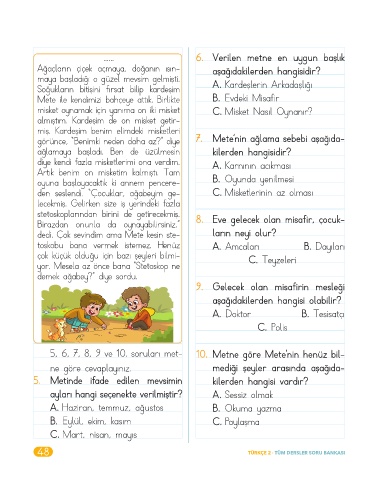 ......
Ağaçların çiçek açmaya, doğanın ısın-
maya başladığı o güzel mevsim gelmişti.
Soğukların bitişini fırsat bilip kardeşim
Mete ile kendimizi bahçeye attık. Birlikte
misket oynamak için yanıma on iki misket
almıştım. Kardeşim de on misket getir-
miş. Kardeşim benim elimdeki misketleri
görünce, "Benimki neden daha az?" diye
ağlamaya başladı. Ben de üzülmesin
diye kendi fazla misketlerimi ona verdim.
Artık benim on misketim kalmıştı. Tam
oyuna başlayacaktık ki annem pencere-
den seslendi." "Çocuklar, ağabeyim ge-
lecekmiş. Gelirken size iş yerindeki fazla
stetoskoplarından birini de getirecekmiş.
Birazdan onunla da oynayabilirsiniz."
dedi. Çok sevindim ama Mete kesin ste-
toskobu bana vermek istemez. Henüz
çok küçük olduğu için bazı şeyleri bilmi-
yor. Mesela az önce bana "Stetoskop ne
demek ağabey?" diye sordu.
5, 6, 7, 8, 9 ve 10. soruları met-
ne göre cevaplayınız.
5. Metinde ifade edilen mevsimin
ayları hangi seçenekte verilmiştir?
A. Haziran, temmuz, ağustos
B. Eylül, ekim, kasım
C. Mart, nisan, mayıs
6. Verilen metne en uygun başlık
aşağıdakilerden hangisidir?
A. Kardeşlerin Arkadaşlığı
B. Evdeki Misafir
C. Misket Nasıl Oynanır?
7. Mete'nin ağlama sebebi aşağıda-
kilerden hangisidir?
A. Karnının acıkması
B. Oyunda yenilmesi
C. Misketlerinin az olması
8. Eve gelecek olan misafir, çocuk-
ların neyi olur?
A. Amcaları B. Dayıları
C. Teyzeleri
9. Gelecek olan misafirin mesleği
aşağıdakilerden hangisi olabilir?
A. Doktor B. Tesisatçı
C. Polis
10. Metne göre Mete'nin henüz bil-
mediği şeyler arasında aşağıda-
kilerden hangisi vardır?
A. Sessiz olmak
B. Okuma yazma
C. Paylaşma
48
TÜRKÇE 2 - TÜM DERSLER SORU BANKASI